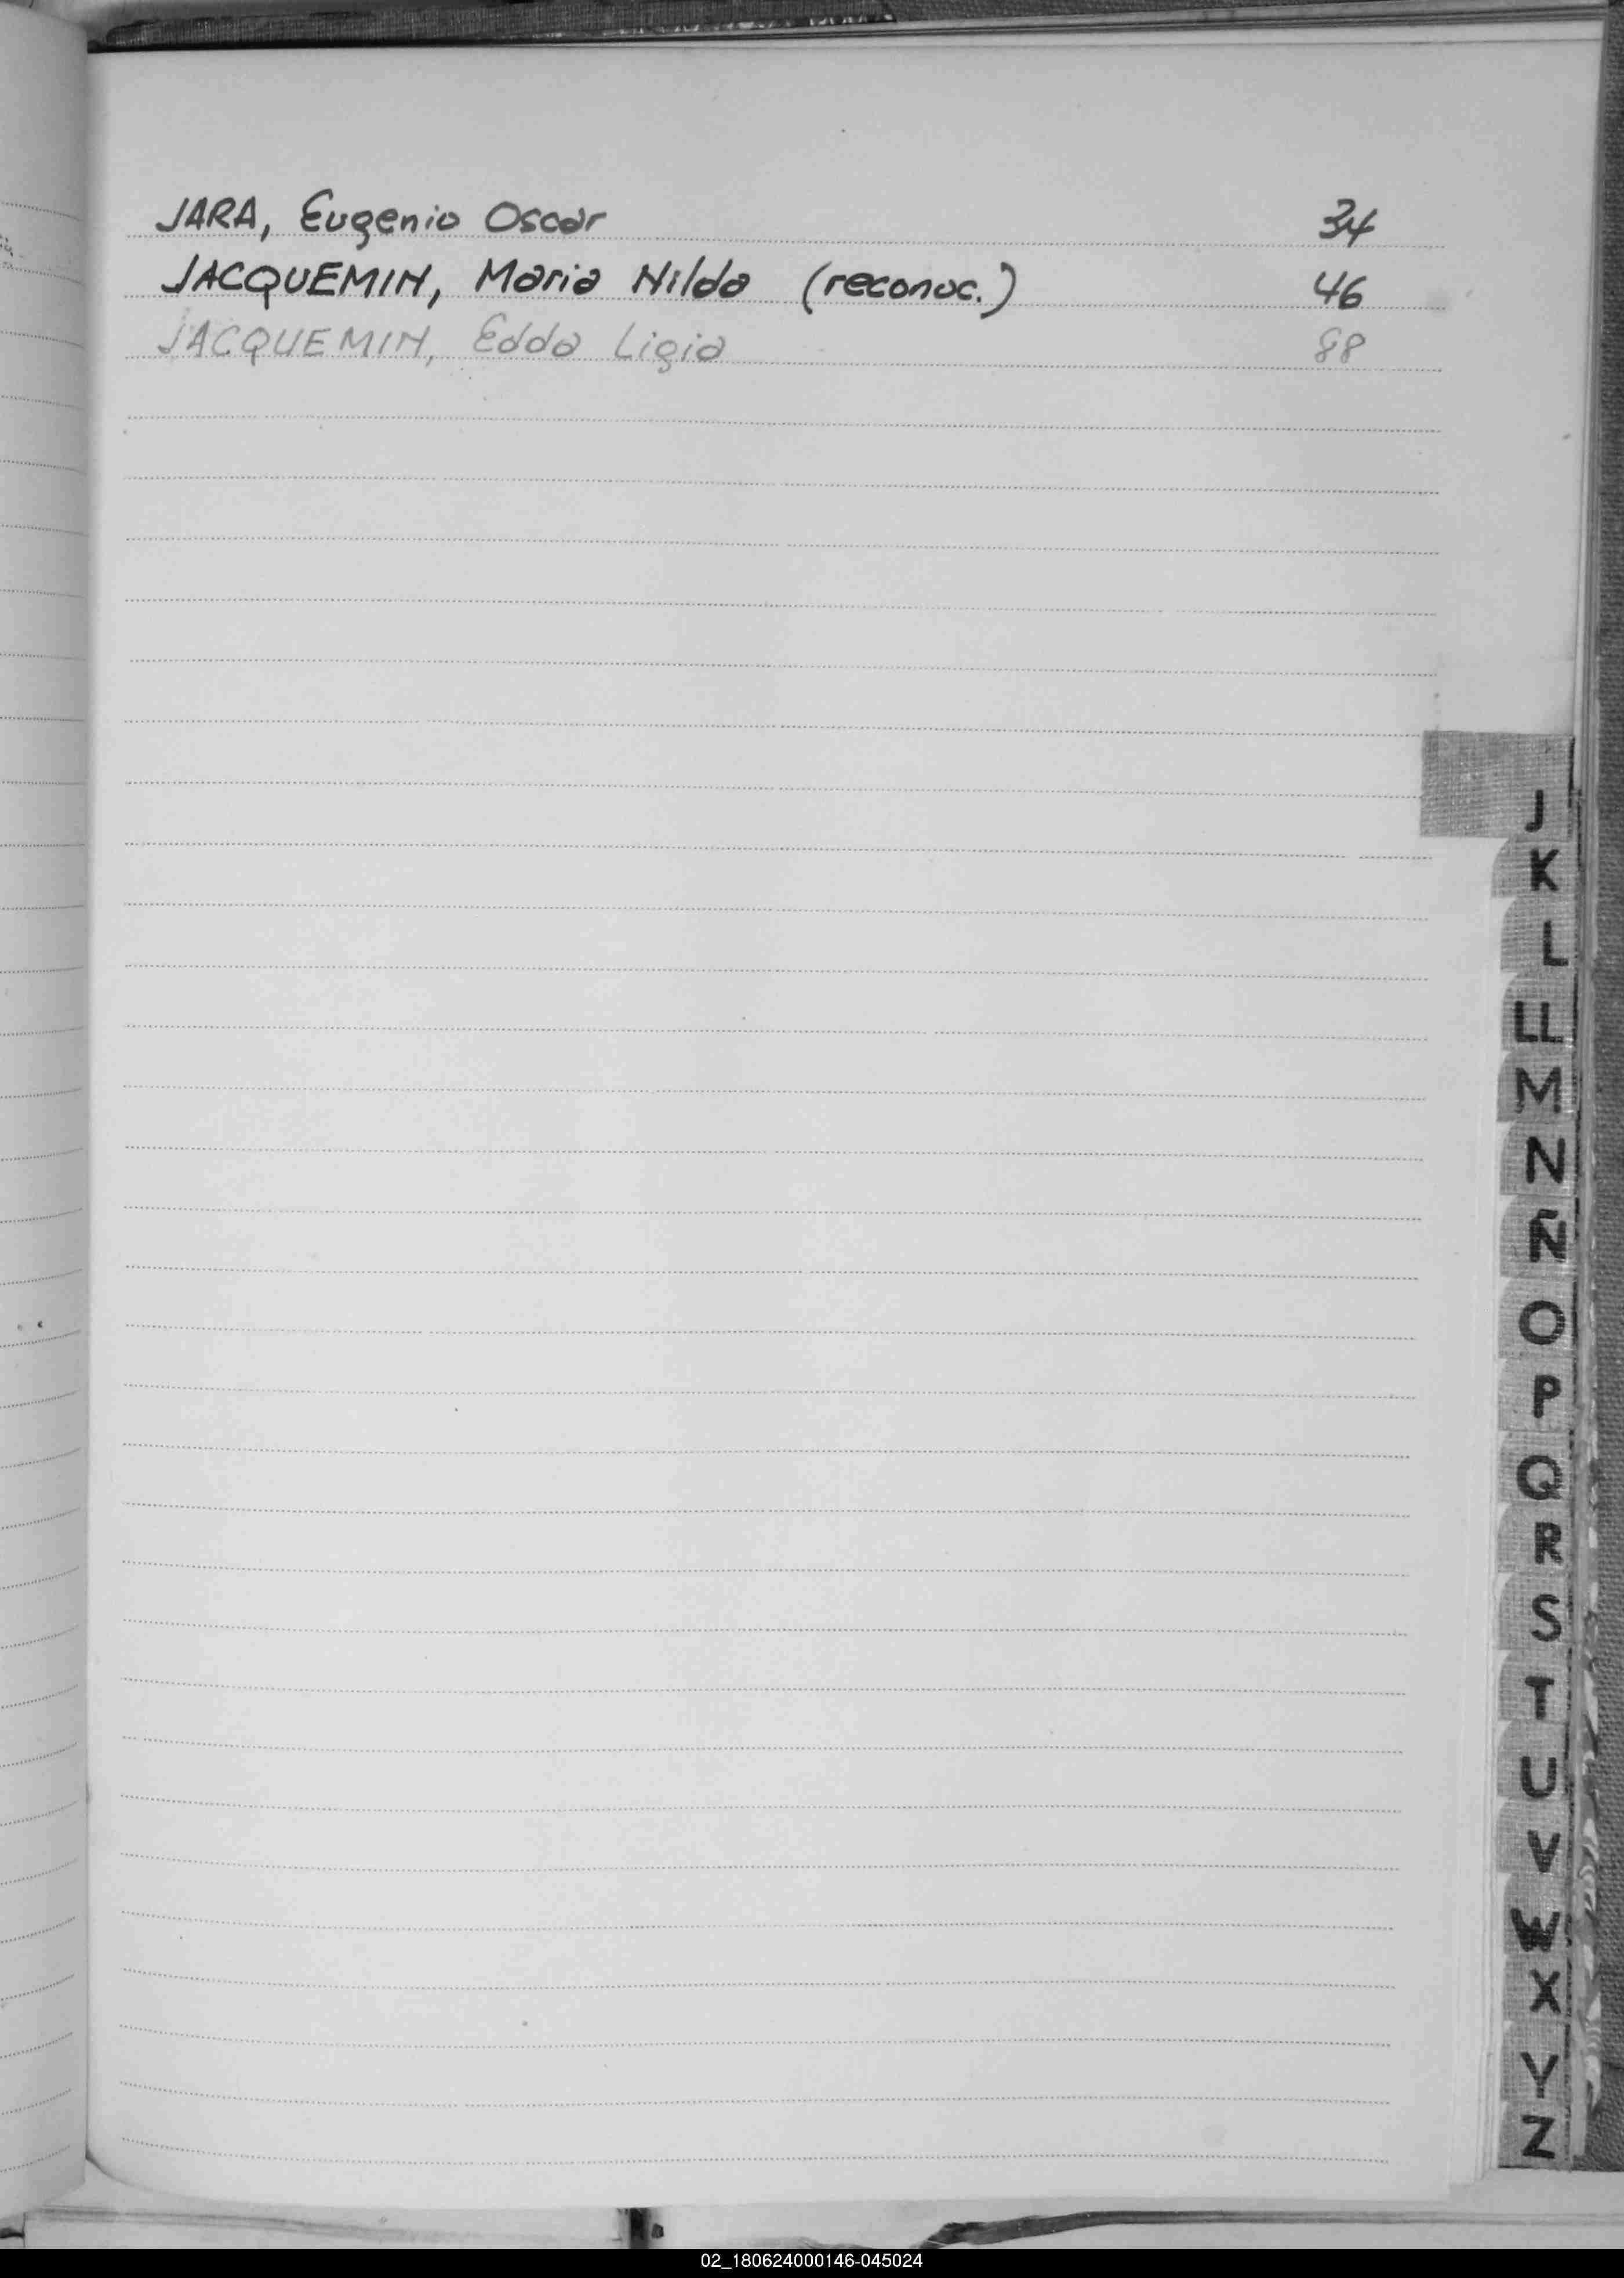 JARA, Eugenio Oscar 34
JACQUEMIN, Maria Nilda (reconoc.) 46
JACQUEMIN, Edda Ligia 88
J
K
L
LL
M
N
Ñ
O
P
Q
R
S
T
U
V
W
X
Y
Z
02_180624000146-045024